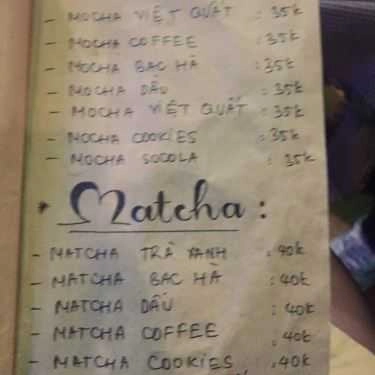 - MOCHA VIỆT QUẤT : 35k
- MOCHA COFFEE : 35k
- MOCHA BẠC HÀ : 35k
- MOCHA DÂU : 35k
- MOCHA VIỆT QUẤT : 35k
- MOCHA COOKIES : 35k
- MOCHA SOCOLA : 35k
* Matcha :
- MATCHA TRÀ XANH : 40k
- MATCHA BẠC HÀ : 40k
- MATCHA DÂU : 40k
- MATCHA COFFEE : 40k
- MATCHA COOKIES : 40k